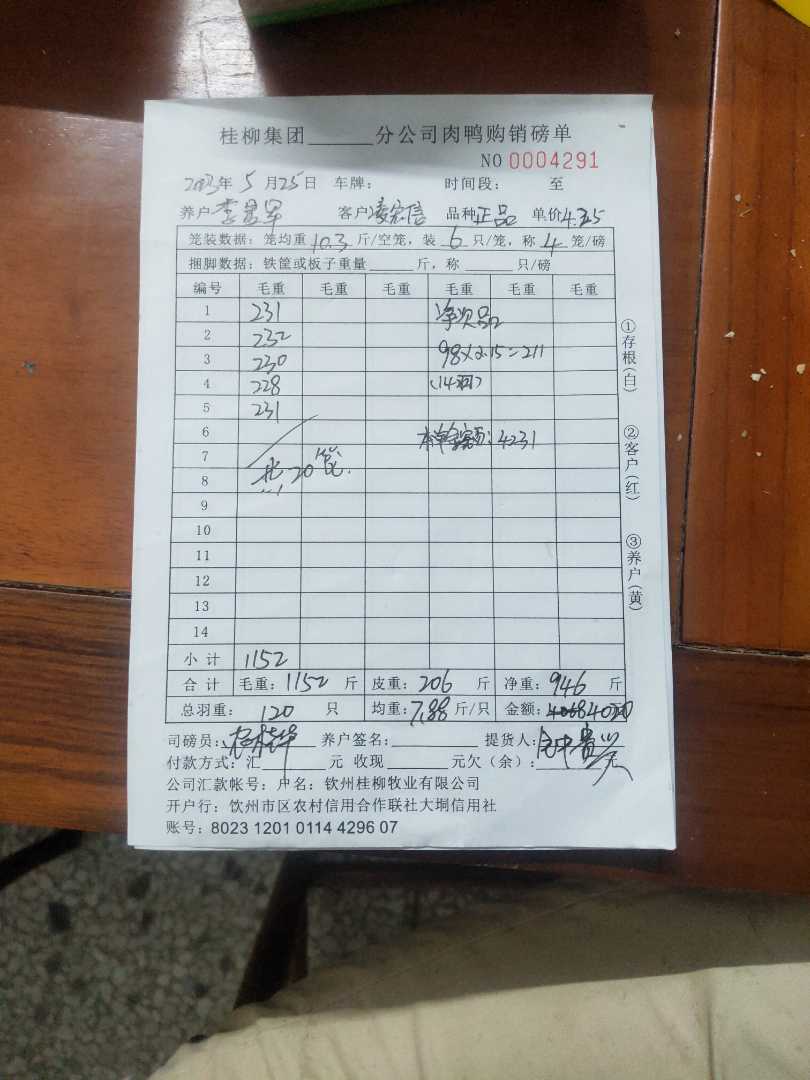 桂柳集团______分公司肉鸭购销磅单
NO 0004291
2023年 5 月25日 车牌: 时间段: 至
养户 客户凌宏信 品种正品 单价4.25
笼装数据: 笼均重10.3斤/空笼, 装 6 只/笼, 称 4 笼/磅
捆脚数据: 铁筐或板子重量_____斤, 称_____只/磅
编号 毛重 毛重 毛重 毛重 毛重 毛重
1 231 净次品
2 232
3 230 98×2.15=211
4 228 (14羽)
5 231
6 本单金额: 4231
7
8 共20笼.
9
10
11
12
13
14
小计 1152
合计 毛重: 1152 斤 皮重: 206 斤 净重: 946 斤
总羽重: 120 只 均重: 7.88 斤/只 金额: 4020
司磅员: 养户签名:_______ 提货人:
付款方式: 汇______元 收现______元欠(余):______元
公司汇款帐号: 户名: 钦州桂柳牧业有限公司
开户行: 饮州市区农村信用合作联社大垌信用社
账号: 8023 1201 0114 4296 07
①存根(白)
②客户(红)
③养户(黄)